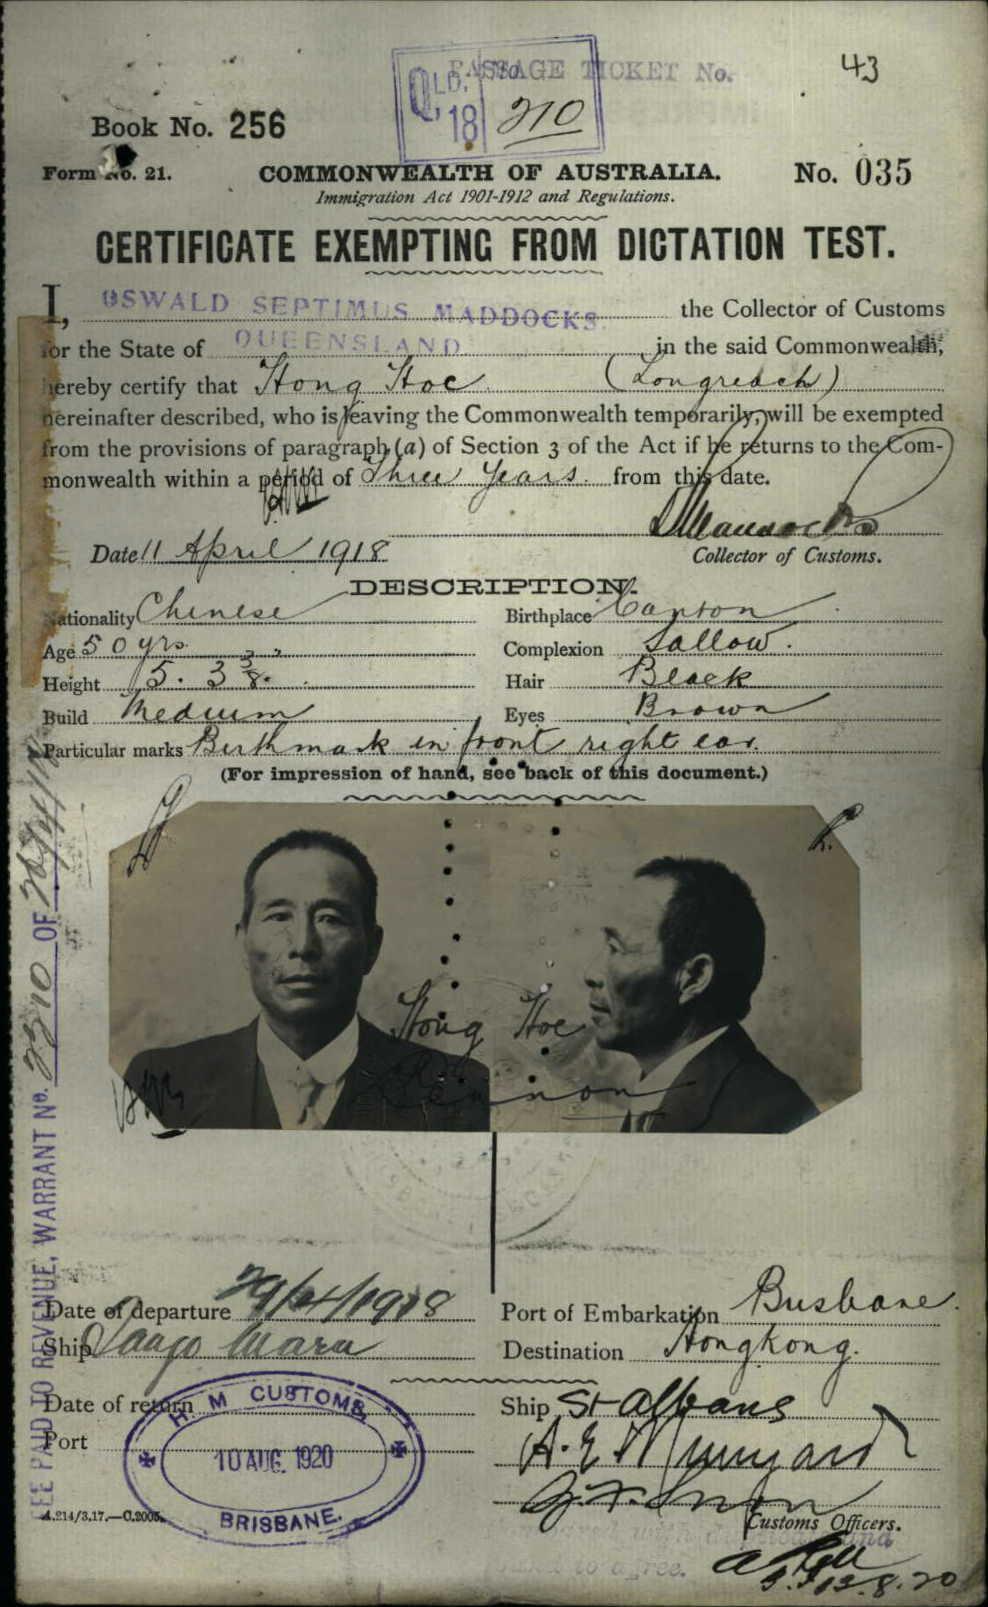 PASSAGE TICKET No.
QLD. No.
18 210
43
Book No. 256
Form No. 21.
COMMONWEALTH OF AUSTRALIA.
No. 035
Immigration Act 1901-1912 and Regulations.
CERTIFICATE EXEMPTING FROM DICTATION TEST.
I, OSWALD SEPTIMUS MADDOCKS the Collector of Customs
for the State of QUEENSLAND in the said Commonwealth,
hereby certify that Hong Hoe (Longreach)
hereinafter described, who is leaving the Commonwealth temporarily, will be exempted
from the provisions of paragraph (a) of Section 3 of the Act if he returns to the Com-
monwealth within a period of Three Years from this date.
Date 11 April 1918
Collector of Customs.
DESCRIPTION.
Nationality Chinese
Birthplace Canton
Age 50 yrs
Complexion Sallow.
Height 5. 3 3/8.
Hair Black
Build Medium
Eyes Brown
Particular marks Birthmark in front right ear.
(For impression of hand, see back of this document.)
Hong Hoe
FEE PAID TO REVENUE, WARRANT No. OF
Date of departure 29/04/1918
Port of Embarkation Brisbane.
Ship Maru
Destination Hongkong.
Date of return
Ship St Albans
Port
H. M CUSTOMS,
10 AUG. 1920
BRISBANE.
Customs Officers.
A.214/3.17.—C.2005.
to agree.
13.8.20